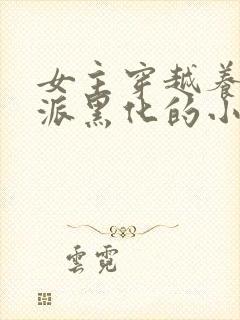 女主穿越养
派黑化的小
雲霓